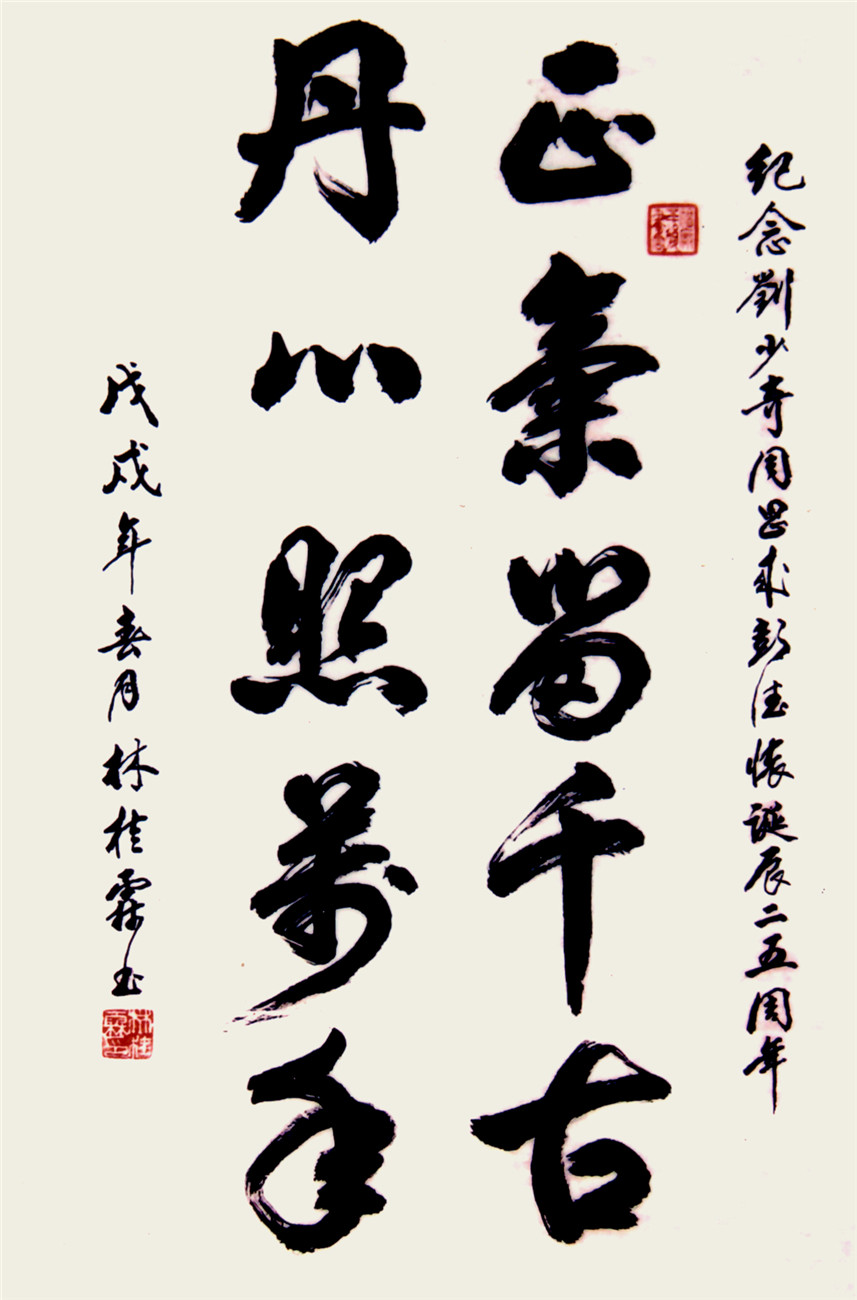 紀念劉少奇周恩来彭德懷誕辰二五周年
正氣留千古
丹心照萬年
戊戌年春月林桂霖書
林桂霖印